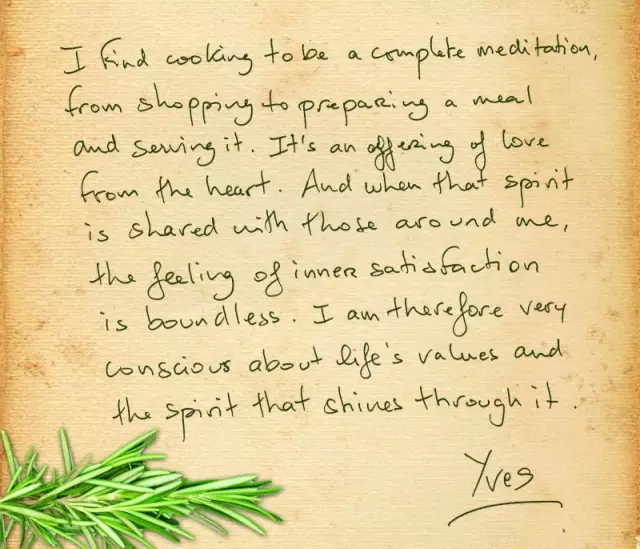 I find cooking to be a complete meditation,
from shopping to preparing a meal
and serving it. It's an offering of love
from the heart. And when that spirit
is shared with those around me,
the feeling of inner satisfaction
is boundless. I am therefore very
conscious about life's values and
the spirit that shines through it.
Yves